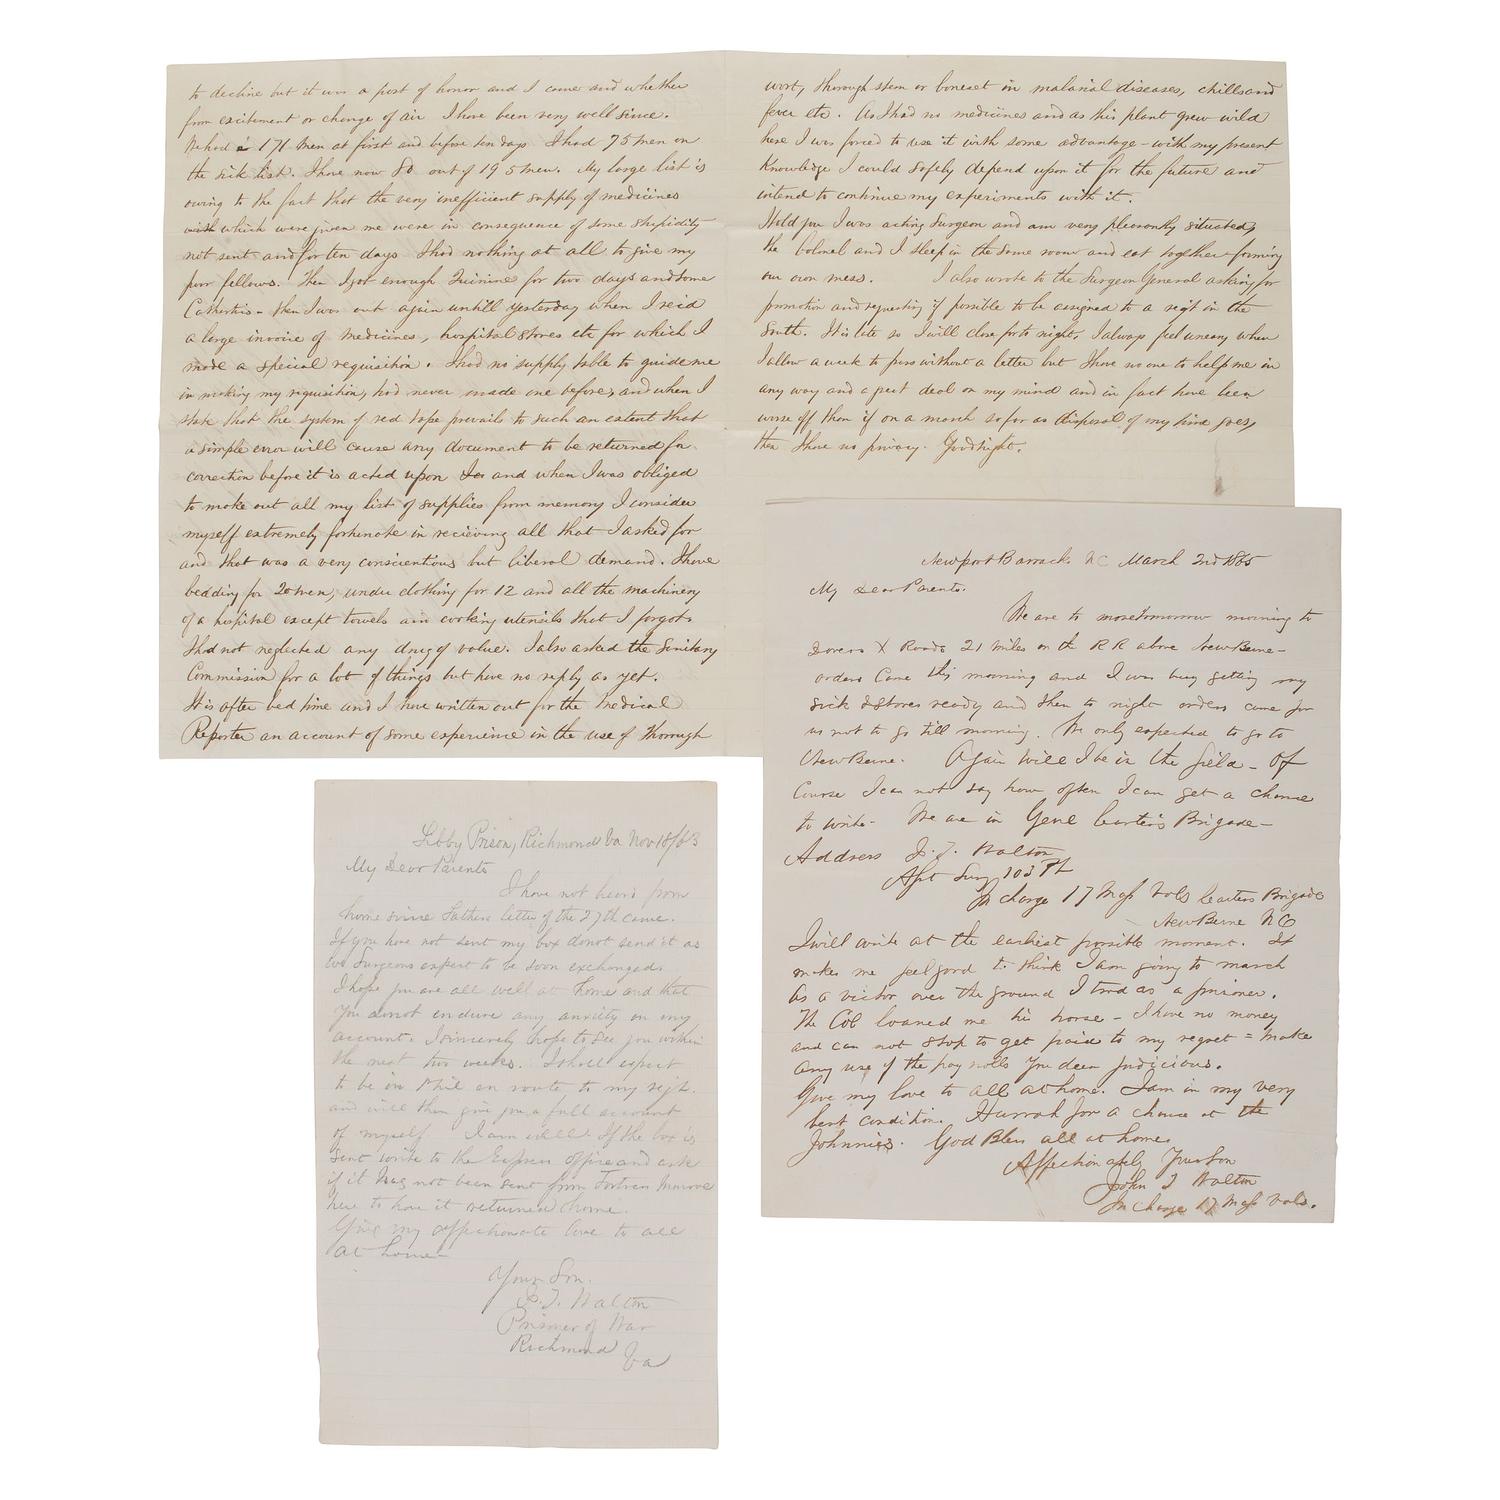 to decline but it was a post of honor and I came and whether
from excitement or change of air I have been very well since.
We had 171 men at first and before ten days I had 75 men on
the sick list. I have now 80 out of 195 men. My large list is
owing to the fact that the very inefficient supply of medicines
with which were given me were in consequence of some stupidity
not sent and for ten days I had nothing at all to give my
poor fellows. Then I got enough Quinine for two days and some
Cathartics - then I was out again untill yesterday when I recd
a large invoice of medicines, hospital stores etc for which I
made a special requisition. I had no supply table to guide me
in making my requisition, had never made one before, and when I
state that the system of red tape prevails to such an extent that
a simple error will cause any document to be returned for
correction before it is acted upon and when I was obliged
to make out all my list of supplies from memory I consider
myself extremely fortunate in recieving all that I asked for
and that was a very conscientious but liberal demand. I have
bedding for 20 men, under clothing for 12 and all the machinery
of a hospital except towels and cooking utensils that I forgot.
I had not neglected any drug of value. I also asked the Sanitary
Commission for a lot of things but have no reply as yet.
It is after bed time and I have written out for the Medical
Reporter an account of some experience in the use of Thorough
wort, thorough stem or boneset in malarial diseases, chills and
fever etc. As I had no medicines and as this plant grew wild
here I was forced to use it with some advantage - with my present
Knowledge I could safely depend upon it for the future and
intend to continue my experiments with it.
I told you I was acting Surgeon and am very pleasantly situated,
the Colonel and I sleep in the same room and eat together - forming
our own mess. I also wrote to the Surgeon General asking for
promotion and requesting if possible to be assigned to a regt in the
South. It is late so I will close for to night, I always feel uneasy when
I allow a week to pass without a letter but I have no one to help me in
any way and a great deal on my mind and in fact have been
worse off than if on a march so far as disposal of my time goes,
then I have no privacy. Good night.
Newport Barracks NC March 2nd 1865
My Dear Parents.
We are to move tomorrow morning to
X Roads 21 miles on the RR above New Berne -
orders came this morning and I was busy getting my
sick & stores ready and then to night orders came for
us not to go till morning. We only expected to go to
New Berne. Again will I be in the field - Of
Course I can not say how often I can get a chance
to write - We are in Genl Carter's Brigade -
Address J. T. Walton
Asst Surg 103 Pa
In charge 17 Mass Vols Carters Brigade
New Berne NC
I will write at the earliest possible moment. It
makes me feel good to think I am going to march
as a victor over the ground I trod as a prisoner.
The Col loaned me his horse - I have no money
and can not stop to get paid to my regret = Make
any use of the pay rolls you deem judicious.
Give my love to all at home. I am in my very
best condition. Hurrah for a chance at the
Johnnies. God Bless all at home.
Affectionately Your Son
John T Walton
In Charge 17 Mass Vols.
Libby Prison, Richmond Va Nov 18/63
My Dear Parents
I have not heard from
home since Fathers letter of the 27th came.
If you have not sent my box do not send it as
we Surgeons expect to be soon exchanged.
I hope you are all well at home and that
you do not endure any anxiety on my
account. I sincerely hope to see you within
the next two weeks. I shall expect
to be in Phil en route to my regt.
and will then give you a full account
of myself I am well. If the box is
sent write to the Express office and ask
if it has not been sent from Fortress Monroe
here to have it returned home.
Give my affectionate love to all
at home -
Your Son.
J. T. Walton
Prisoner of War
Richmond Va